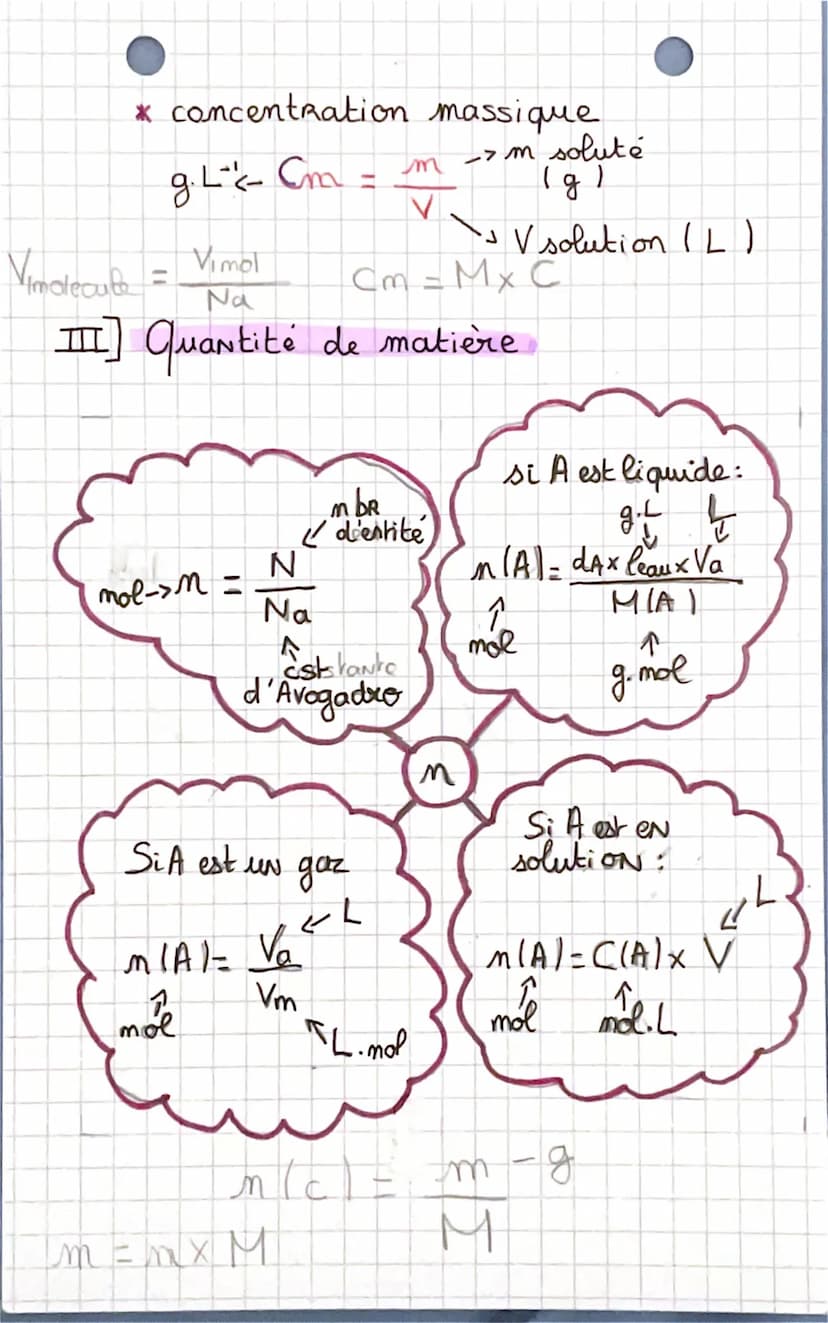 * concentration massique
g.L⁻¹ <- Cm = m/V -> m soluté (g)
-> V solution (L)
V1molecule = V1mol/Na Cm = M x C
III] Quantité de matière
nbR d'entité
mol -> n = N/Na
cststante
d'Avogadro
si A est liquide :
g.L L
n(A) = dA x ρeau x Va / M(A)
mol
g.mol
n
Si A est un gaz
L
n(A) = Va/Vm
mol
L.mol
Si A est en
solution :
L
n(A) = C(A) x V
mol mol.L
n(c) = m/M - g
m = n x M